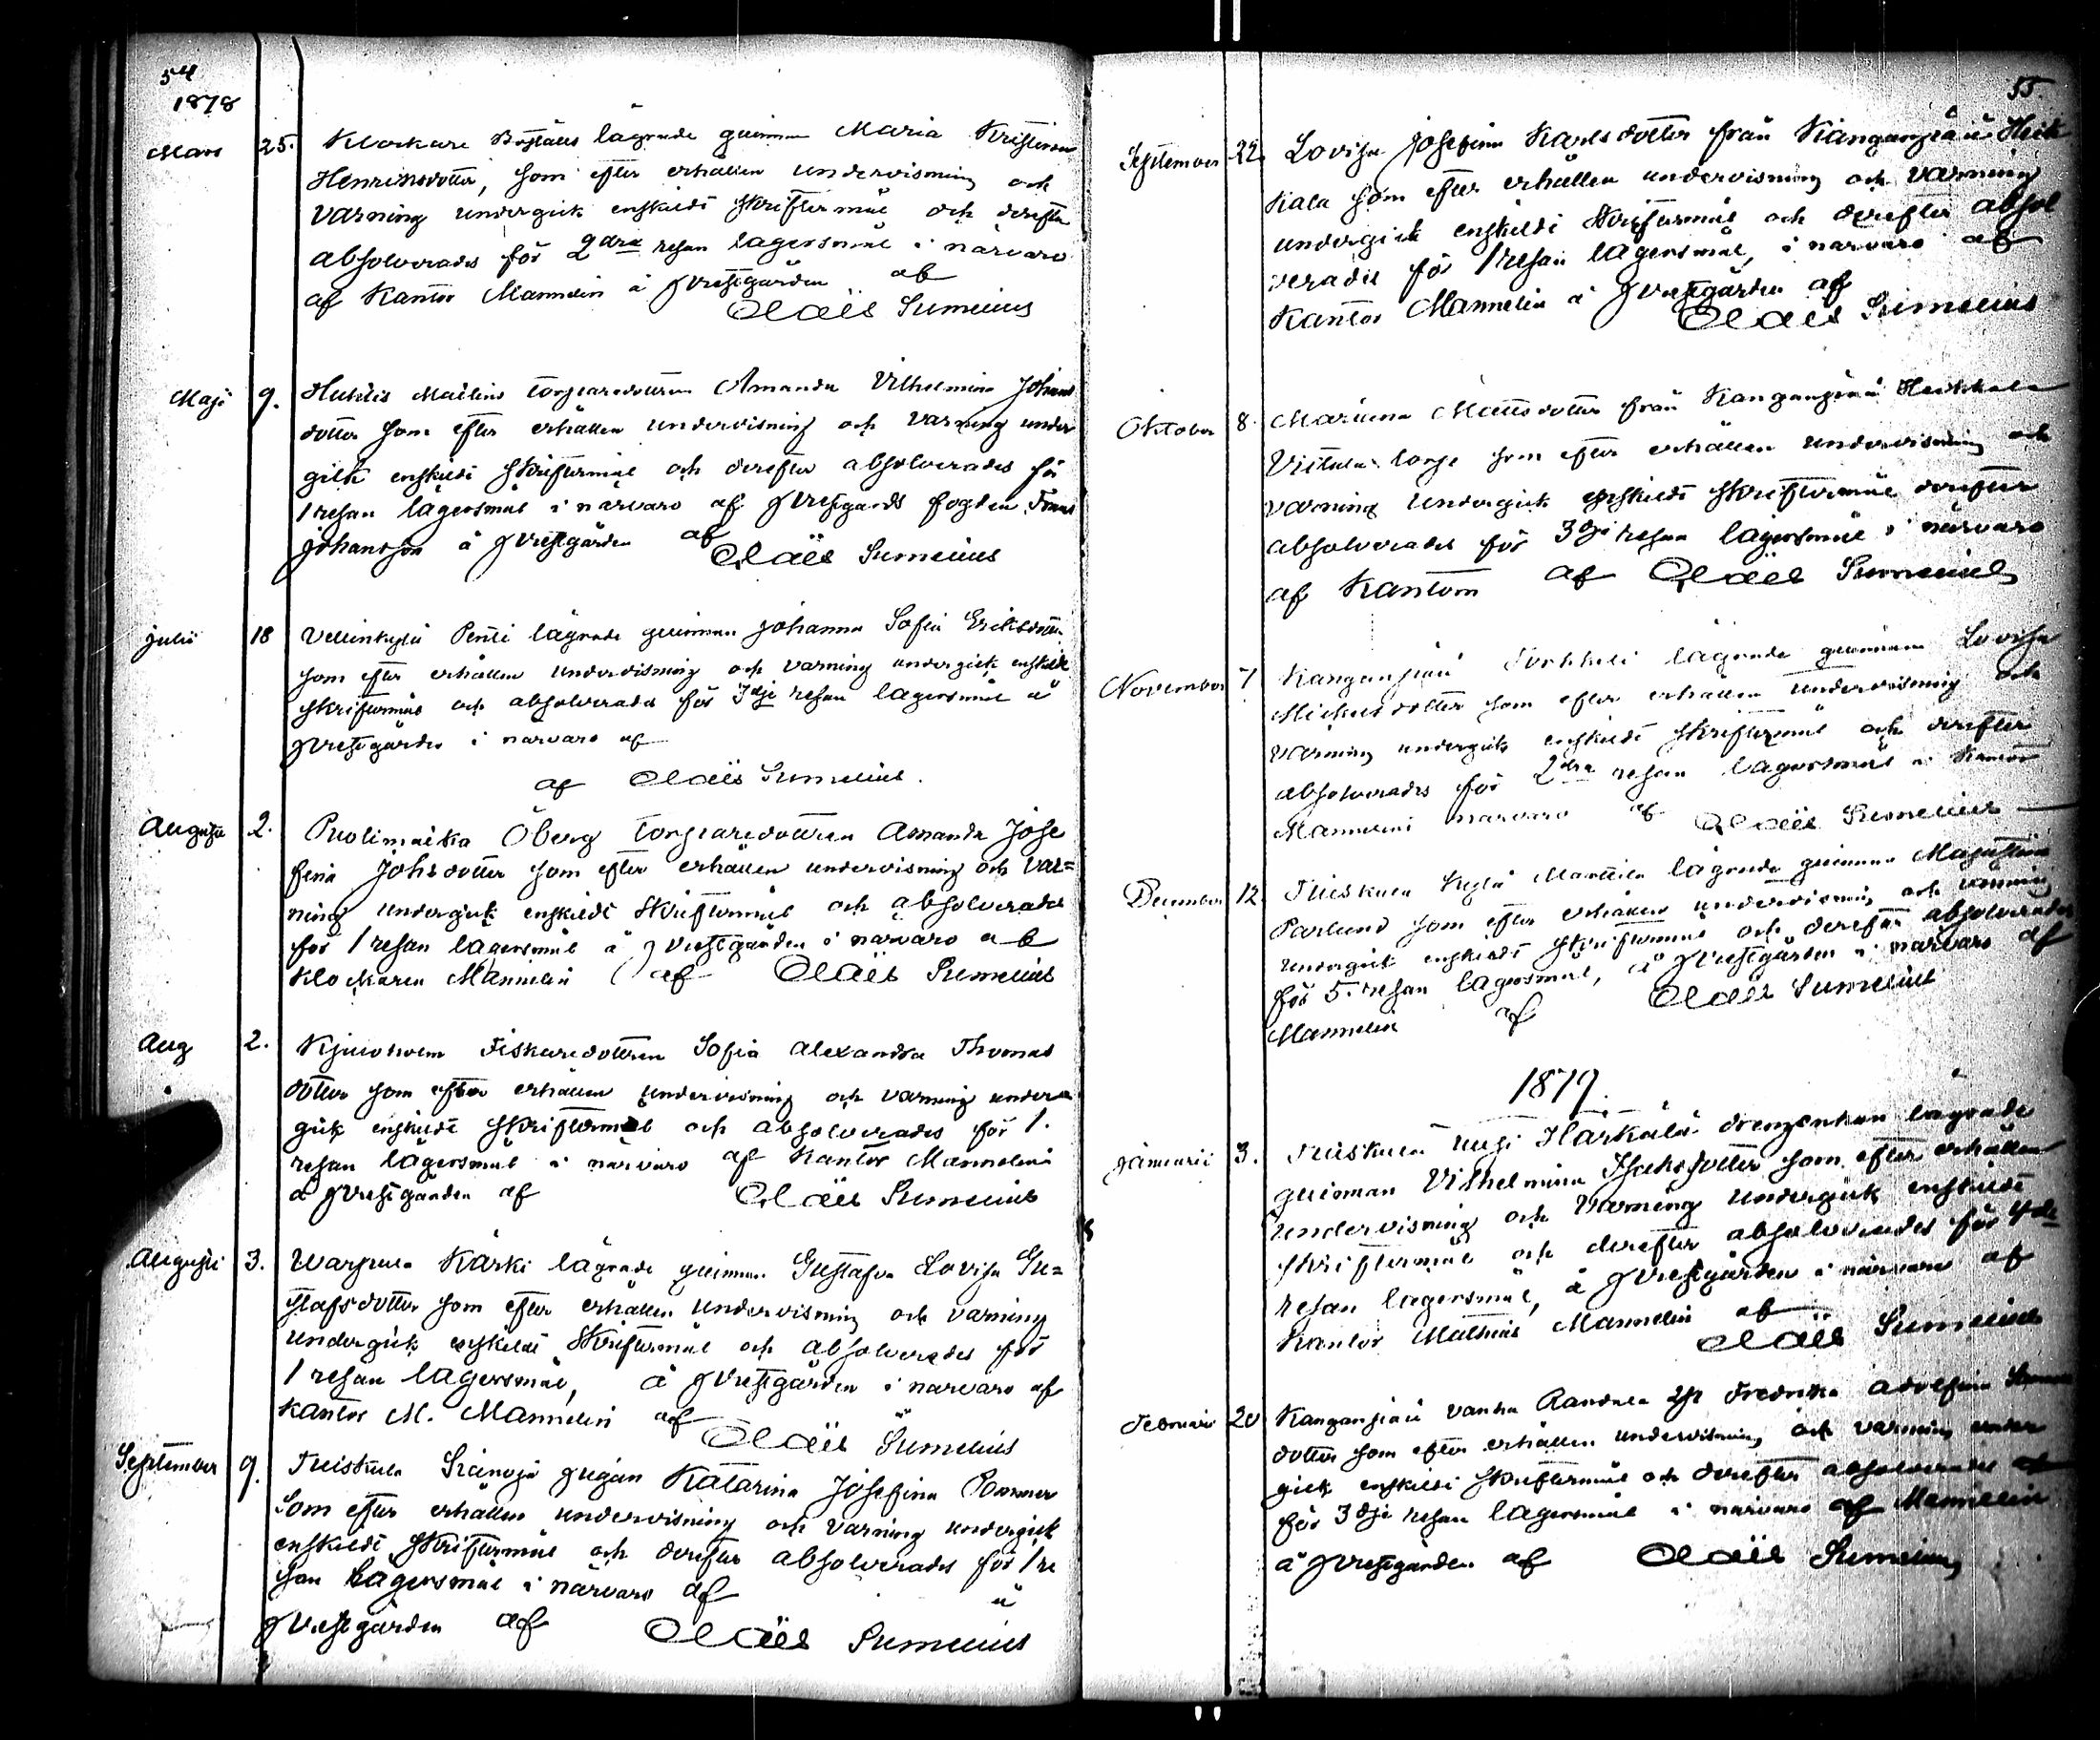 54
1878
Mars 25. Klockare Boställes lägrade quinnan Maria Kristina
Henriksdotter, som efter erhållen undervisning och
varning undergick enskildt skriftermål och derefter
absolverades för 2dra resan lägersmål i närvaro
af Kantor Mannelin å prestgården af
Claës Sumelius
Maji 9. torparedottren Amanda Vilhelmina Johans
dotter som efter erhållen undervisning och varning under
gick enskildt skriftermål och derefter absolverades för
1 resan lägersmål i närvaro af prestgårds fogden Frans
Johansson å prestgården af Claës Sumelius
Julii 18 Vellinkylä Pentti lägrade quinnan Johanna Sofia Eriksdotter
som efter erhållen undervisning och varning undergick enskildt
skriftermål och absolverades för 3dje resan lägersmål å
prestgården i närvaro af
af Claës Sumelius.
Augusti 2. Puolimatka Öberg torparedottren Amanda Jose
fina Johsdotter som efter erhållen undervisning och var=
ning undergick enskildt skriftermål och absolverades
för 1 resan lägersmål å prestgården i närvaro af
Klockaren Mannelin af Claës Sumelius
Aug 2. Fiskaredottren Sofia Alexandra Thomas
dotter som efter erhållen undervisning och varning under
gick enskildt skriftermål och absolverades för 1.
resan lägersmål i närvaro af Kantor Mannelin
å prestgården af Claës Sumelius
Augusti 3. Kärki lägrade quinnan Gustafva Lovisa Gu=
stafsdotter som efter erhållen undervisning och varning
undergick enskildt skriftermål och absolverades för
1 resan lägersmål, å prestgården i närvaro af
Kantor M. Mannelin af
Claës Sumelius
September 9. Friiskula pigan Katarina Josefina
som efter erhållen undervisning och varning undergick
enskildt skriftermål och derefter absolverades för 1 re
san lägersmål i närvaro af å
prestgården af Claës Sumelius
55.
September 22. Lovisa Josefina Karlsdotter från Kanganpää Heik
kala som efter erhållen undervisning och varning
undergick enskildt skriftermål och derefter absol
verades för 1 resan lägersmål, i närvaro af
Kantor Mannelin å prestgården af
Claës Sumelius
Oktober 8. Mattsdotter från Kanganpää Heikkala
torp som efter erhållen undervisning och
varning undergick enskildt skriftermål derefter
absolverades för 3dje resan lägersmål i närvaro
af Kantorn af Claës Sumelius
November 7. Kanganpää lägrade quinnan Lovisa
Mickelsdotter som efter erhållen undervisning och
varning undergick enskildt skriftermål och derefter
absolverades för 2dra resan lägersmål i Kantor
Mannelins närvaro af Claës Sumelius
December 12. Friiskula Kylä Marttila lägrade quinnan
Parlund som efter erhållen undervisning och varning
undergick enskildt skriftermål och derefter absolverades
för 5. resan lägersmål, å prestgården i närvaro af
Mannelin af Claës Sumelius
1879.
Januarii 3. Friiskula Uusi Härkälä drengenkan lägrade
quinnan Vilhelmina Isaksdotter som efter erhållen
undervisning och varning undergick enskildt
skriftermål och derefter absolverades för 4de
resan lägersmål, å prestgården i närvaro af
Kantor Mathias Mannelin af
Claës Sumelius
Februari 20 Kanganpää vanha Fredrika Adolfina
dotter som efter erhållen undervisning och varning under
gick enskildt skriftermål och derefter absolverades
för 3dje resan lägersmål i närvaro af Mannelin
å prestgården af Claës Sumelius